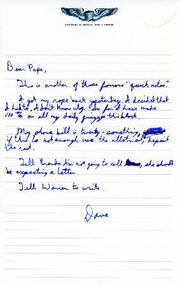 Dear Pops,
This is another of those famous "quick notes."
I got my rope back yesterday. I decided that
I don't know. So far I have made
100% on all my daily this block.
My phone bill is twenty-something,
if this is not enough use the allotment, deposit
the rest.
Tell I'm not going to call, she should
be expecting a letter.
Tell Warren to write.
Dave